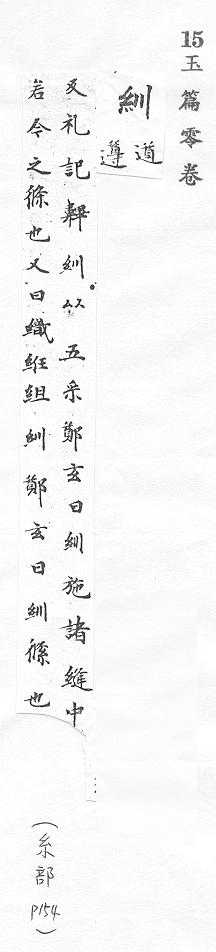 15
玉篇零卷
紃
遵道
又礼記韠紃以五采鄭玄曰紃施諸縫中
若今之絛也又曰織紝組紃鄭玄曰紃絛也
…
(糸部 P154)